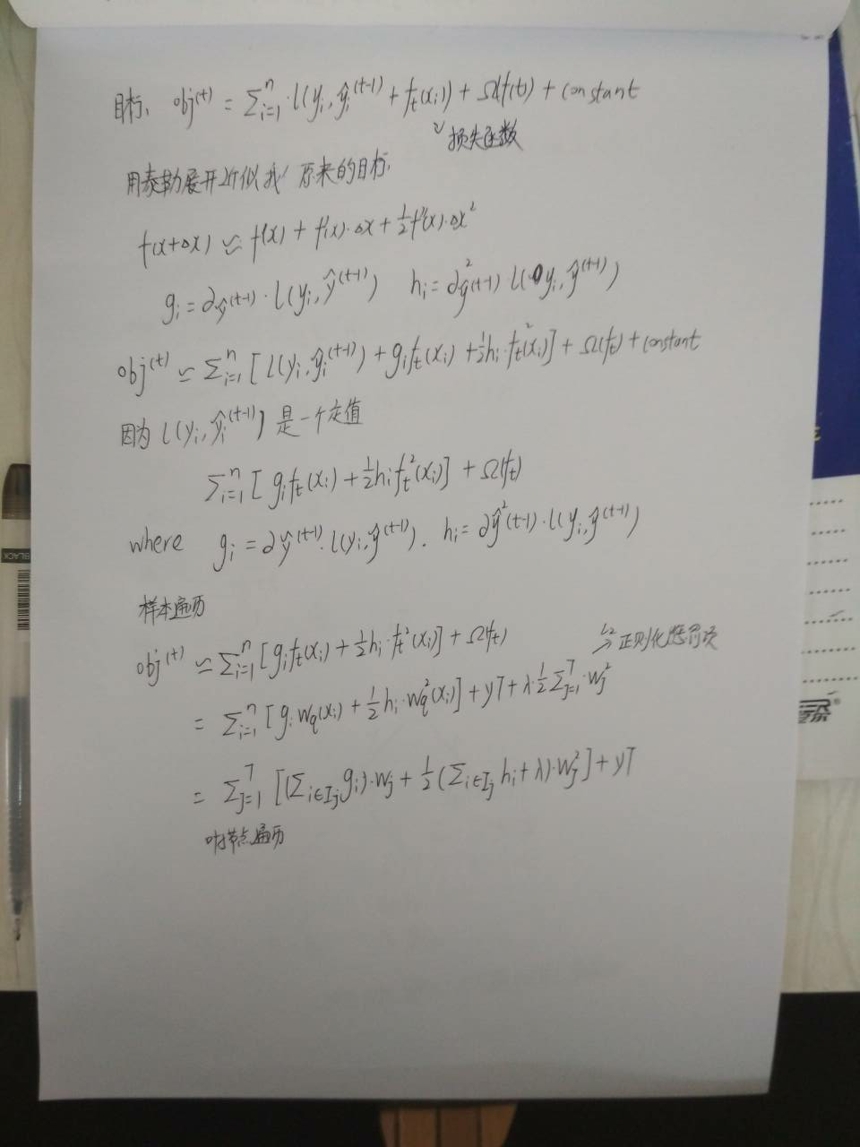 目标, obj^(t) = Σ_{i=1}^n · l(y_i, ŷ_i^(t-1) + f_t(x_i)) + Ω(f(t)) + constant
损失函数
用泰勒展开近似我 原来的目标,
f(x+Δx) ≃ f(x) + f'(x)·Δx + ½f''(x)·Δx²
g_i = ∂ŷ^(t-1) · l(y_i, ŷ^(t-1)) h_i = ∂²ŷ^(t-1) l(y_i, ŷ^(t-1))
obj^(t) ≃ Σ_{i=1}^n [l(y_i, ŷ_i^(t-1)) + g_i f_t(x_i) + ½h_i·f_t²(x_i)] + Ω(f_t) + constant
因为 l(y_i, ŷ_i^(t-1)) 是一个定值
Σ_{i=1}^n [g_i f_t(x_i) + ½h_i f_t²(x_i)] + Ω(f_t)
where g_i = ∂ŷ^(t-1)·l(y_i, ŷ^(t-1)). h_i = ∂ŷ²^(t-1)·l(y_i, ŷ^(t-1))
样本遍历
obj^(t) ≃ Σ_{i=1}^n [g_i f_t(x_i) + ½h_i·f_t²(x_i)] + Ω(f_t)
正则化惩罚项
= Σ_{i=1}^n [g_i w_q(x_i) + ½h_i·w_q²(x_i)] + γT + λ·½Σ_{j=1}^T·w_j²
= Σ_{j=1}^T [(Σ_{i∈I_j} g_i)·w_j + ½(Σ_{i∈I_j} h_i + λ)·w_j²] + γT
叶节点遍历
BLACK